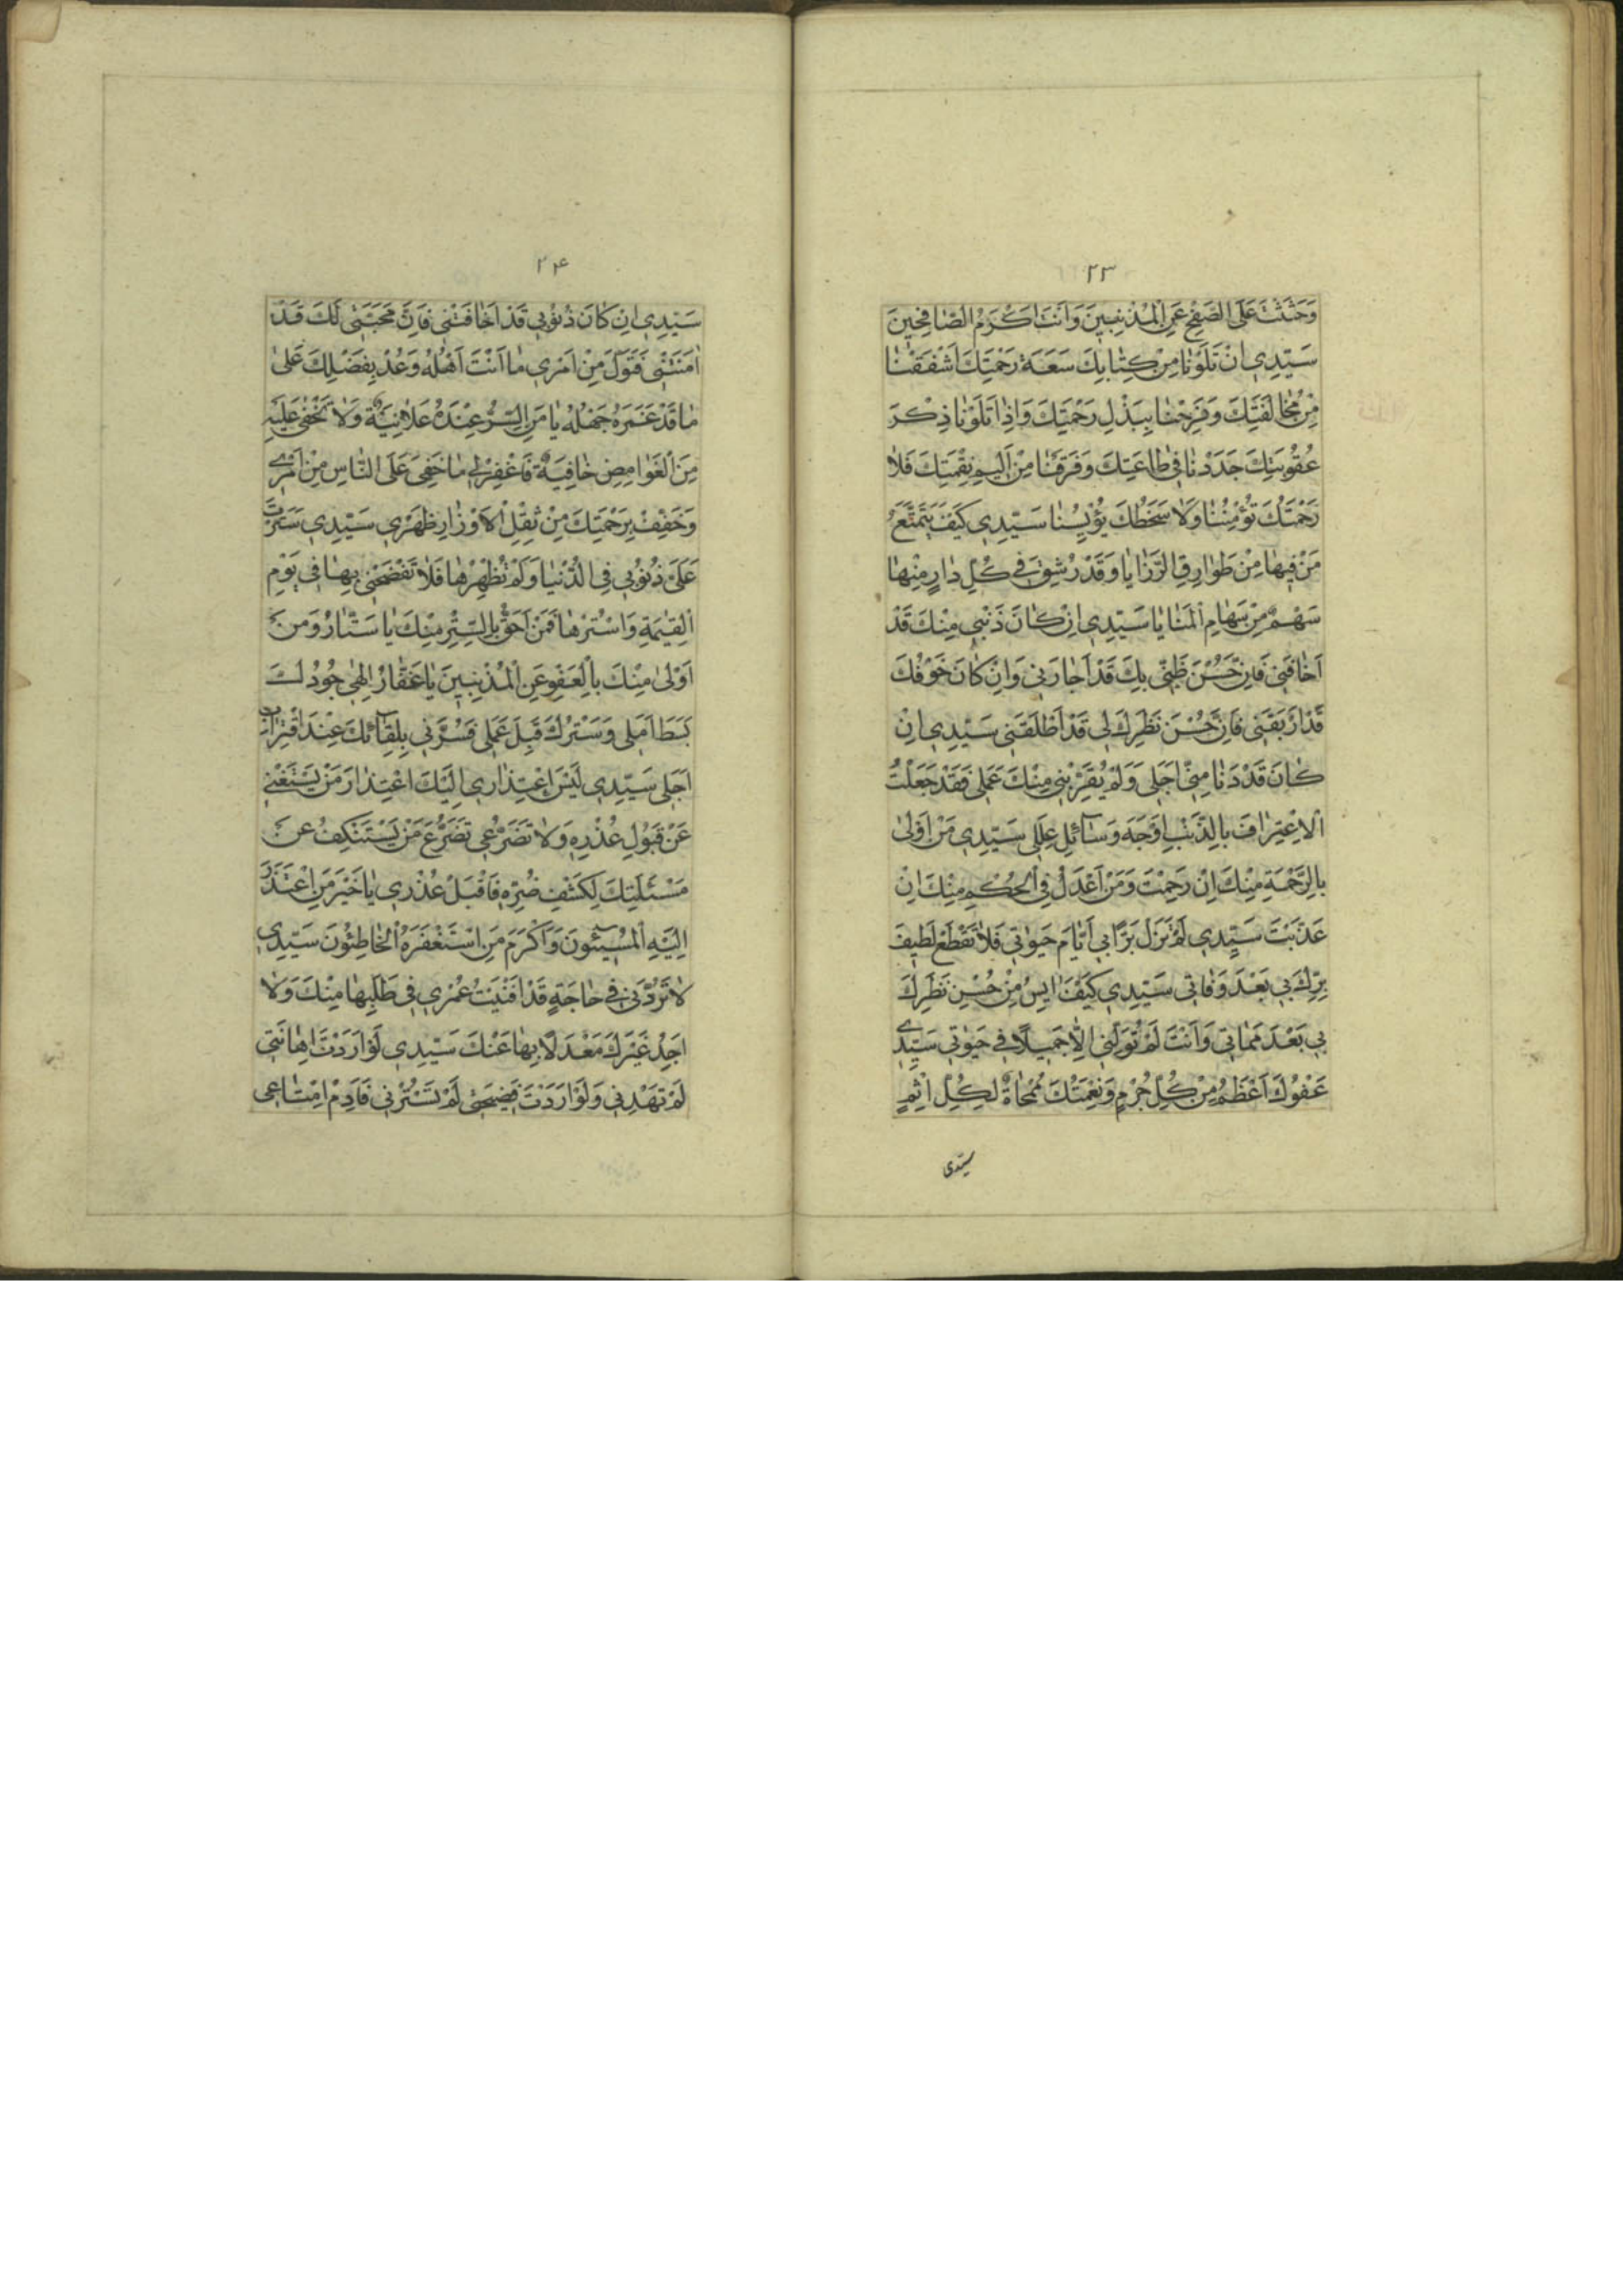 ٢٣
وَحَثَثْتَ عَلَى الصَّفْحِ عَنِ الْمُذْنِبِينَ وَاَنْتَ اَكْرَمُ الصّٰافِحِينَ
سَيِّدِي اِنْ تَلَوْنٰا مِنْ كِتٰابِكَ سَعَةَ رَحْمَتِكَ اَشْفَقْنٰا
مِنْ مُخٰالَفَتِكَ وَفَرِحْنٰا بِبَذْلِ رَحْمَتِكَ وَاِذٰا تَلَوْنٰا ذِكْرَ
عُقُوبَتِكَ جَدَدْنٰا فِي طٰاعَتِكَ وَفَرَقْنٰا مِنْ اَلِيمِ نِقْمَتِكَ فَلاٰ
رَحْمَتُكَ تُؤْمِنُنٰا وَلاٰ سَخَطُكَ يُؤْيِسُنٰا سَيِّدِي كَيْفَ يَتَمَتَّعُ
مَنْ فِيهٰا مِنْ طَوٰارِقِ الرَّزٰايٰا وَقَدْ رُشِقَ فِي كُلِّ دٰارٍ مِنْهٰا
سَهْمٌ مِنْ سِهٰامِ الْمَنٰايٰا سَيِّدِي اِنْ كٰانَ ذَنْبِي مِنْكَ قَدْ
اَخٰافَنِي فَاِنَّ حُسْنَ ظَنِّي بِكَ قَدْ اَجٰارَنِي وَاِنْ كٰانَ خَوْفُكَ
قَدْ اَرْبَقَنِي فَاِنَّ حُسْنَ نَظَرِكَ لِي قَدْ اَطْلَقَنِي سَيِّدِي اِنْ
كٰانَ قَدْ دَنٰا مِنِّي اَجَلِي وَلَمْ يُقَرِّبْنِي مِنْكَ عَمَلِي فَقَدْ جَعَلْتُ
الْاِعْتِرٰافَ بِالذَّنْبِ اَوْجَهَ وَسٰآئِلِ عِلَلِي سَيِّدِي مَنْ اَوْلىٰ
بِالرَّحْمَةِ مِنْكَ اِنْ رَحِمْتَ وَمَنْ اَعْدَلُ فِي الْحُكْمِ مِنْكَ اِنْ
عَذَّبْتَ سَيِّدِي لَمْ تَزَلْ بَرّاً بِي اَيّٰامَ حَيٰوتِي فَلاٰ تَقْطَعْ لَطِيفَ
بِرِّكَ بِي بَعْدَ وَفٰاتِي سَيِّدِي كَيْفَ اٰيِسُ مِنْ حُسْنِ نَظَرِكَ
بِي بَعْدَ مَمٰاتِي وَاَنْتَ لَمْ تُوَلِّنِي اِلّاٰ جَمِيلاً فِي حَيٰوتِي سَيِّدِي
عَفْوُكَ اَعْظَمُ مِنْ كُلِّ جُرْمٍ وَنِعْمَتُكَ مُمْحٰاةٌ لِكُلِّ اِثْمٍ
سیدی
٢۴
سَيِّدِي اِنْ كٰانَ ذُنُوبِي قَدْ اَخٰافَتْنِي فَاِنَّ مَحَبَّتِي لَكَ قَدْ
اٰمَنَتْنِي فَتَوَلَّ مِنْ اَمْرِي مٰا اَنْتَ اَهْلُهُ وَعُدْ بِفَضْلِكَ عَلىٰ
مٰا قَدْ غَمَرَهُ جَهْلُهُ يٰا مَنِ السِّرُّ عِنْدَهُ عَلاٰنِيَةٌ وَلاٰ تَخْفىٰ عَلَيْهِ
مِنَ الْغَوٰامِضِ خٰافِيَةٌ فَاغْفِرْ لِي مٰا خَفِيَ عَلَى النّٰاسِ مِنْ اَمْرِي
وَخَفِّفْ بِرَحْمَتِكَ مِنْ ثِقْلِ الْاَوْزٰارِ ظَهْرِي سَيِّدِي سَتَرْتَ
عَلَيَّ ذُنُوبِي فِي الدُّنْيٰا وَلَمْ تُظْهِرْهٰا فَلاٰ تَفْضَحْنِي بِهٰا فِي يَوْمِ
الْقِيٰمَةِ وَاسْتُرْهٰا فَمَنْ اَحَقُّ بِالسَّتْرِ مِنْكَ يٰا سَتّٰارُ وَمَنْ
اَوْلىٰ مِنْكَ بِالْعَفْوِ عَنِ الْمُذْنِبِينَ يٰا غَفّٰارُ اِلٰهِي جُودُكَ
بَسَطَ اَمَلِي وَسَتْرُكَ قَبِلَ عَمَلِي فَسُرَّنِي بِلِقٰآئِكَ عِنْدَ اقْتِرٰابِ
اَجَلِي سَيِّدِي لَيْسَ اعْتِذٰارِي اِلَيْكَ اعْتِذٰارَ مَنْ يَسْتَغْنِي
عَنْ قَبُولِ عُذْرِهِ وَلاٰ تَضَرُّعِي تَضَرُّعَ مَنْ يَسْتَنْكِفُ عَنْ
مَسْئَلَتِكَ لِكَشْفِ ضُرِّهِ فَاقْبَلْ عُذْرِي يٰا خَيْرَ مَنِ اعْتَذَرَ
اِلَيْهِ الْمُسِيئُونَ وَاَكْرَمَ مَنِ اسْتَغْفَرَهُ الْخٰاطِئُونَ سَيِّدِي
لاٰ تَرُدَّنِي فِي حٰاجَةٍ قَدْ اَفْنَيْتُ عُمْرِي فِي طَلَبِهٰا مِنْكَ وَلاٰ
اَجِدُ غَيْرَكَ مَعْدَلاً بِهٰا عَنْكَ سَيِّدِي لَوْ اَرَدْتَ اِهٰانَتِي
لَمْ تَهْدِنِي وَلَوْ اَرَدْتَ فَضِيحَتِي لَمْ تَسْتُرْنِي فَاَدِمْ اِمْتٰاعِي